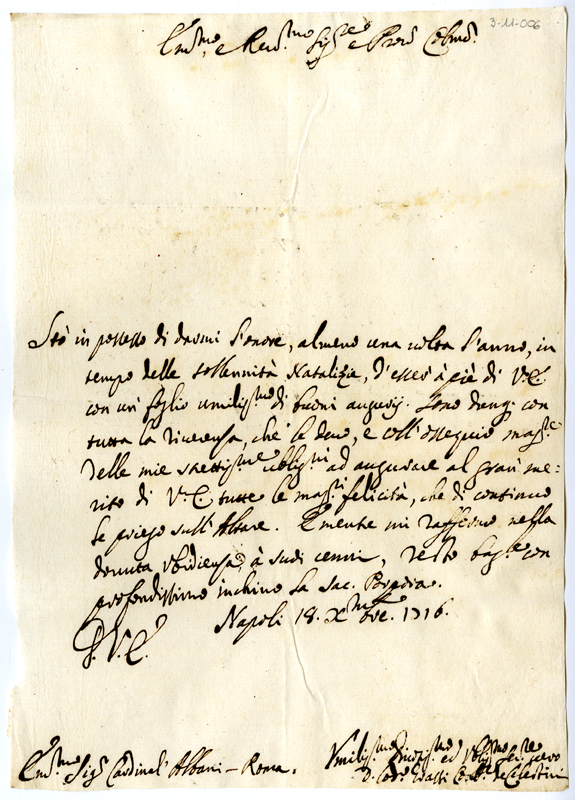 3-11-006
Em.mo e Rev.mo Sig.re e Pro.n Colmo.
Stò in possesso di darmi l'onore, almeno una volta l'anno, in
tempo delle sollennità Natalizie, d'esser à piè di V.E.
con un foglio umiliss.mo di buoni augurij. Sono dunq. con
tutta la riverenza, che le devo, e coll'ossequio mag.re
delle mie strettiss.me obblig.ni ad augurare al gran me=
rito di V.E. tutte le mag.ri felicità, che di continuo
le priego sull'Altare. E mentre mi raffermo nella
dovuta Vbidienza à suoi cenni, resto bag.e con
profondissimo inchino la Sac. Porpora.
Napoli 18. Xmbre. 1716.
D.V.E.
Em.mo Sig.r Cardinal' Albani – Roma.
Vmiliss.mo Divotiss.mo ed Vbblig.mo Ser.re vero
D. de Celestini